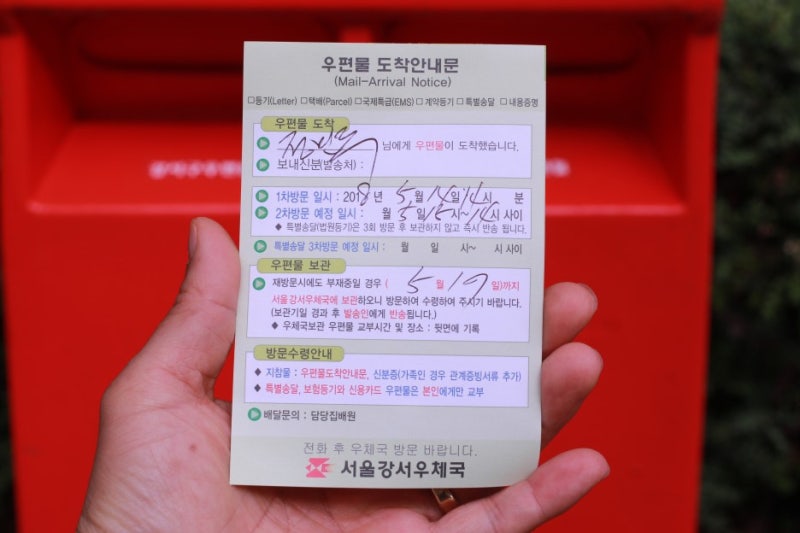 우편물 도착안내문
(Mail-Arrival Notice)
□등기(Letter) □택배(Parcel) □국제특급(EMS) □계약등기 □특별송달 □내용증명
우편물 도착
님에게 우편물이 도착했습니다.
보내신분(발송처) :
1차방문 일시 : 2018년 5월 14일 14시 분
2차방문 예정 일시 : 월 5일 15시~14시 사이
◆ 특별송달(법원등기)은 3회 방문 후 보관하지 않고 즉시 반송 됩니다.
특별송달 3차방문 예정 일시 : 월 일 시~ 시 사이
우편물 보관
재방문시에도 부재중일 경우 ( 5월 19일)까지
서울강서우체국에 보관하오니 방문하여 수령하여 주시기 바랍니다.
(보관기일 경과 후 발송인에게 반송됩니다.)
◆ 우체국보관 우편물 교부시간 및 장소 : 뒷면에 기록
방문수령안내
◆ 지참물 : 우편물도착안내문, 신분증(가족인 경우 관계증빙서류 추가)
◆ 특별송달, 보험등기와 신용카드 우편물은 본인에게만 교부
배달문의 : 담당집배원
전화 후 우체국 방문 바랍니다.
서울강서우체국